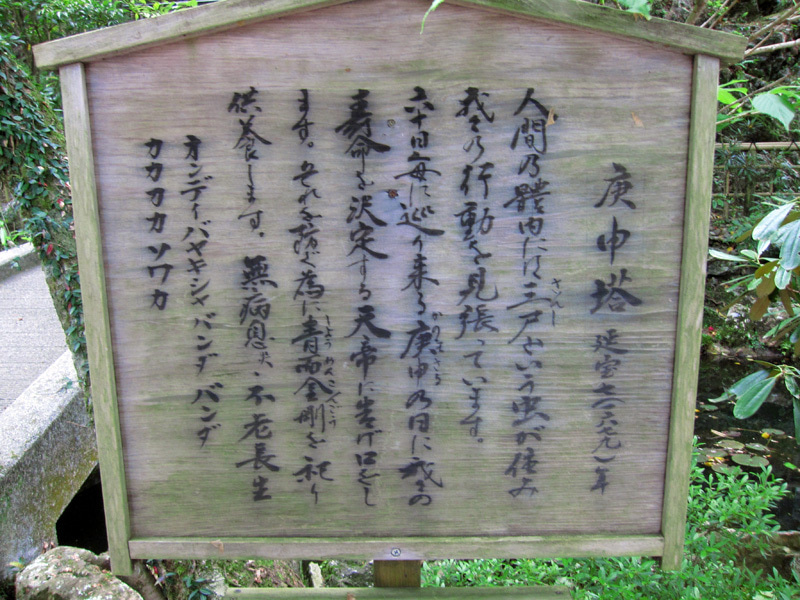 庚申塔 延宝七(一六七九)年
人間の體内には三尸という虫が住み
さんし
我々の行動を見張っています。
六十日毎に巡り来る庚申の日に我々の
かのえさる
寿命を決定する天帝に告げ口をし
ます。それを防ぐ為に青面金剛を祀り
しょうめんこんごう
供養します。無病息災・不老長生
オンディバヤキシャバンダ バンダ
カカカカソワカ